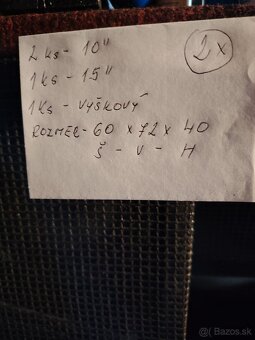 2 ks - 10"
2x
1 ks - 15"
1 Ks - VÝŠKOVÝ
ROZMER - 60 x 72 x 40
Š - V - H
Bazos.sk